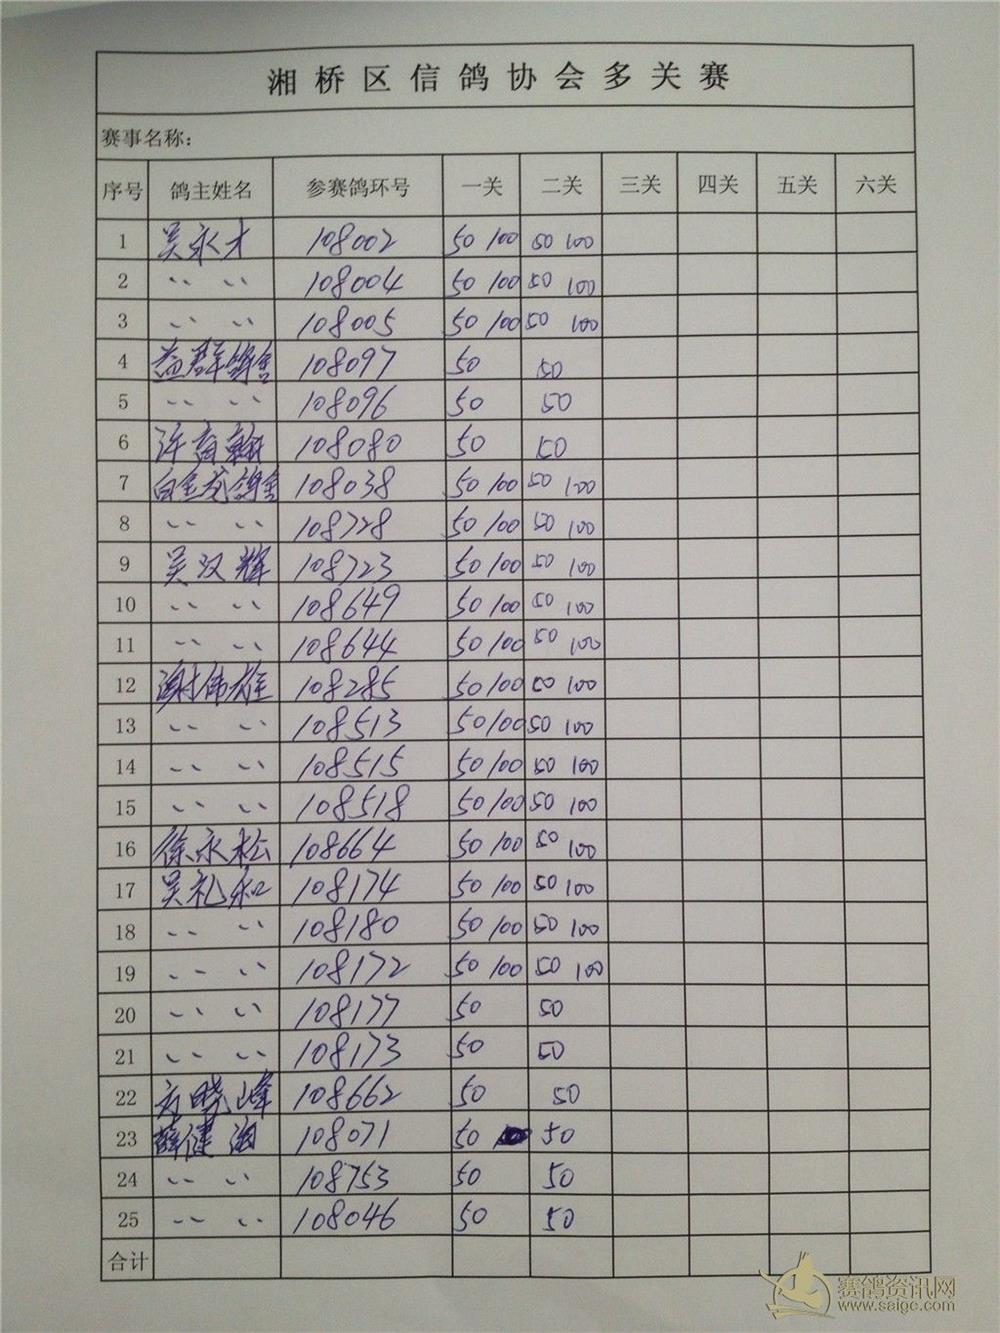 湘桥区信鸽协会多关赛
赛事名称：
序号 鸽主姓名 参赛鸽环号 一关 二关 三关 四关 五关 六关
1 吴永才 108002 50 100 50 100
2 〃 〃 108004 50 100 50 100
3 〃 〃 108005 50 100 50 100
4 益群鸽舍 108097 50 50
5 〃 〃 108096 50 50
6 许 翰 108080 50 50
7 白金龙鸽舍 108038 50 100 50 100
8 〃 〃 108728 50 100 50 100
9 吴汉辉 108723 50 100 50 100
10 〃 〃 108649 50 100 50 100
11 〃 〃 108644 50 100 50 100
12 谢伟雄 108285 50 100 50 100
13 〃 〃 108513 50 100 50 100
14 〃 〃 108515 50 100 50 100
15 〃 〃 108518 50 100 50 100
16 徐永松 108664 50 100 50 100
17 吴礼和 108174 50 100 50 100
18 〃 〃 108180 50 100 50 100
19 〃 〃 108172 50 100 50 100
20 〃 〃 108177 50 50
21 〃 〃 108173 50 50
22 方晓峰 108662 50 50
23 薛健 108071 50 50
24 〃 〃 108753 50 50
25 〃 〃 108046 50 50
合计
赛鸽资讯网
www.saigc.com